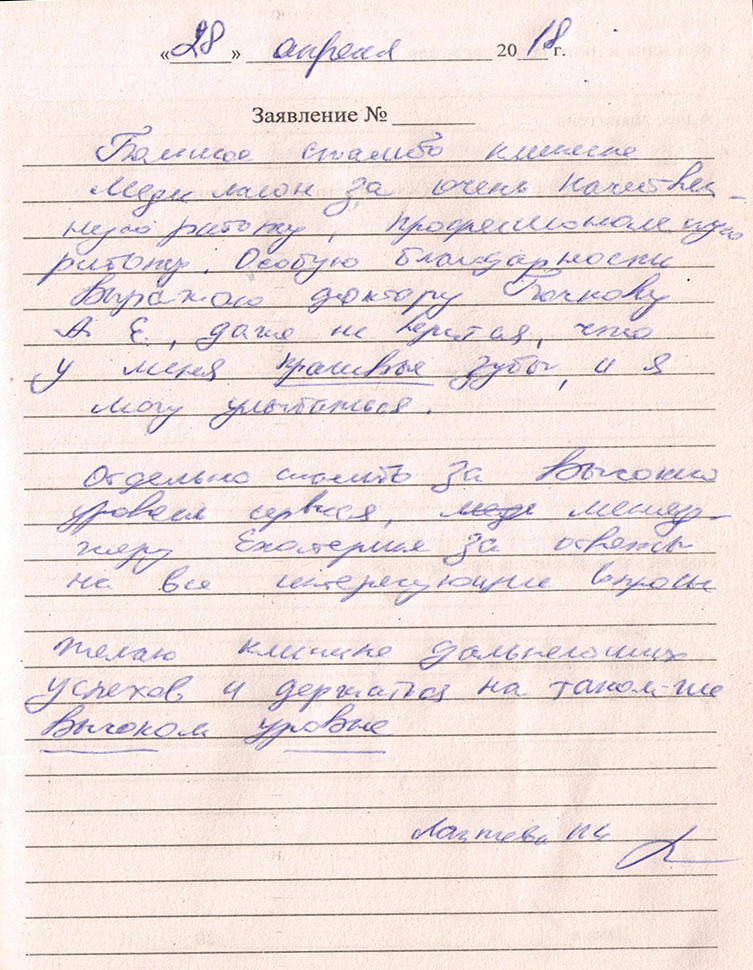 «28» апреля 2018 г.
Заявление №
Большое спасибо клинике
Меди лион за очень качествен-
ную работу, профессиональную
работу. Особую благодарность
выражаю доктору Бочкову
А Е., даже не верится, что
у меня красивые зубы, и я
могу улыбаться.
Отдельно спасибо за высокий
уровень сервиса, менед-
жеру Екатерине за ответы
на все интересующие вопросы
Желаю клинике дальнейших
успехов и держаться на таком-же
высоком уровне
Лаптева